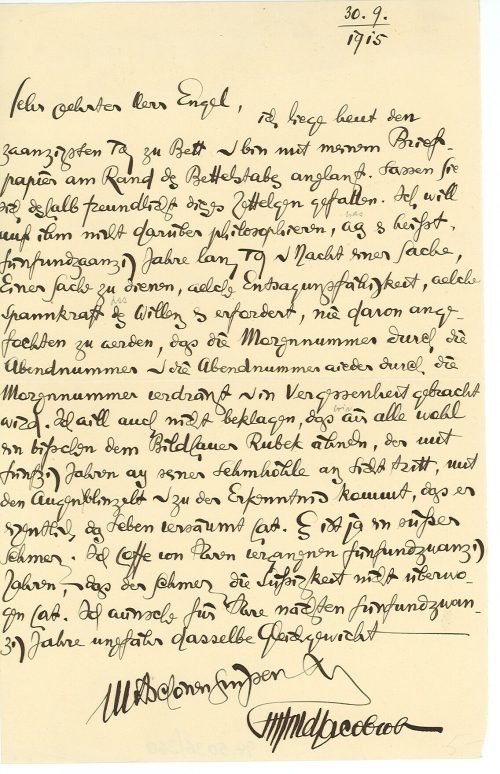 30. 9.
1915
Sehr geehrter Herr Engel,
ich liege heut den
zwanzigsten Tag zu Bett & bin mit meinem Brief-
papier am Rand des Bettelstabes anglangt. Lassen Sie
sich deshalb freundlichst dieses Zettelgen gefallen. Ich will
auf ihm nicht darüber philosophieren, was es heißt,
fünfundzwanzig Jahre lang Tag & Nacht einer Sache,
Einer Sache zu dienen, welche Entsagungsfähigkeit, welche
Spannkraft des Willens es erfordert, nie davon ange-
fochten zu werden, das die Morgennummer durch die
Abendnummer & die Abendnummer wieder durch die
Morgennummer verdrängt & in Vergessenheit gebracht
wird. Ich will auch nicht beklagen, das wir alle wohl
ein bisschen dem Bildhauer Rubek ähneln, der mit
fünfzig Jahren aus seiner Lehmhöhle ans Licht tritt, mit
den Augen blinzelt & zu der Erkenntnis kommt, das er
eigentlich das Leben versäumt hat. Es ist ja ein süßer
Schmerz. Ich hoffe von Ihren vergangnen fünfundzwanzig
Jahren, das der Schmerz die Süßigkeit nicht überwo-
gen hat. Ich wünsche für Ihre nächsten fünfundzwan-
zig Jahre ungefähr dasselbe Gleichgewicht
Mit schönen Grüßen
Jacobsohn